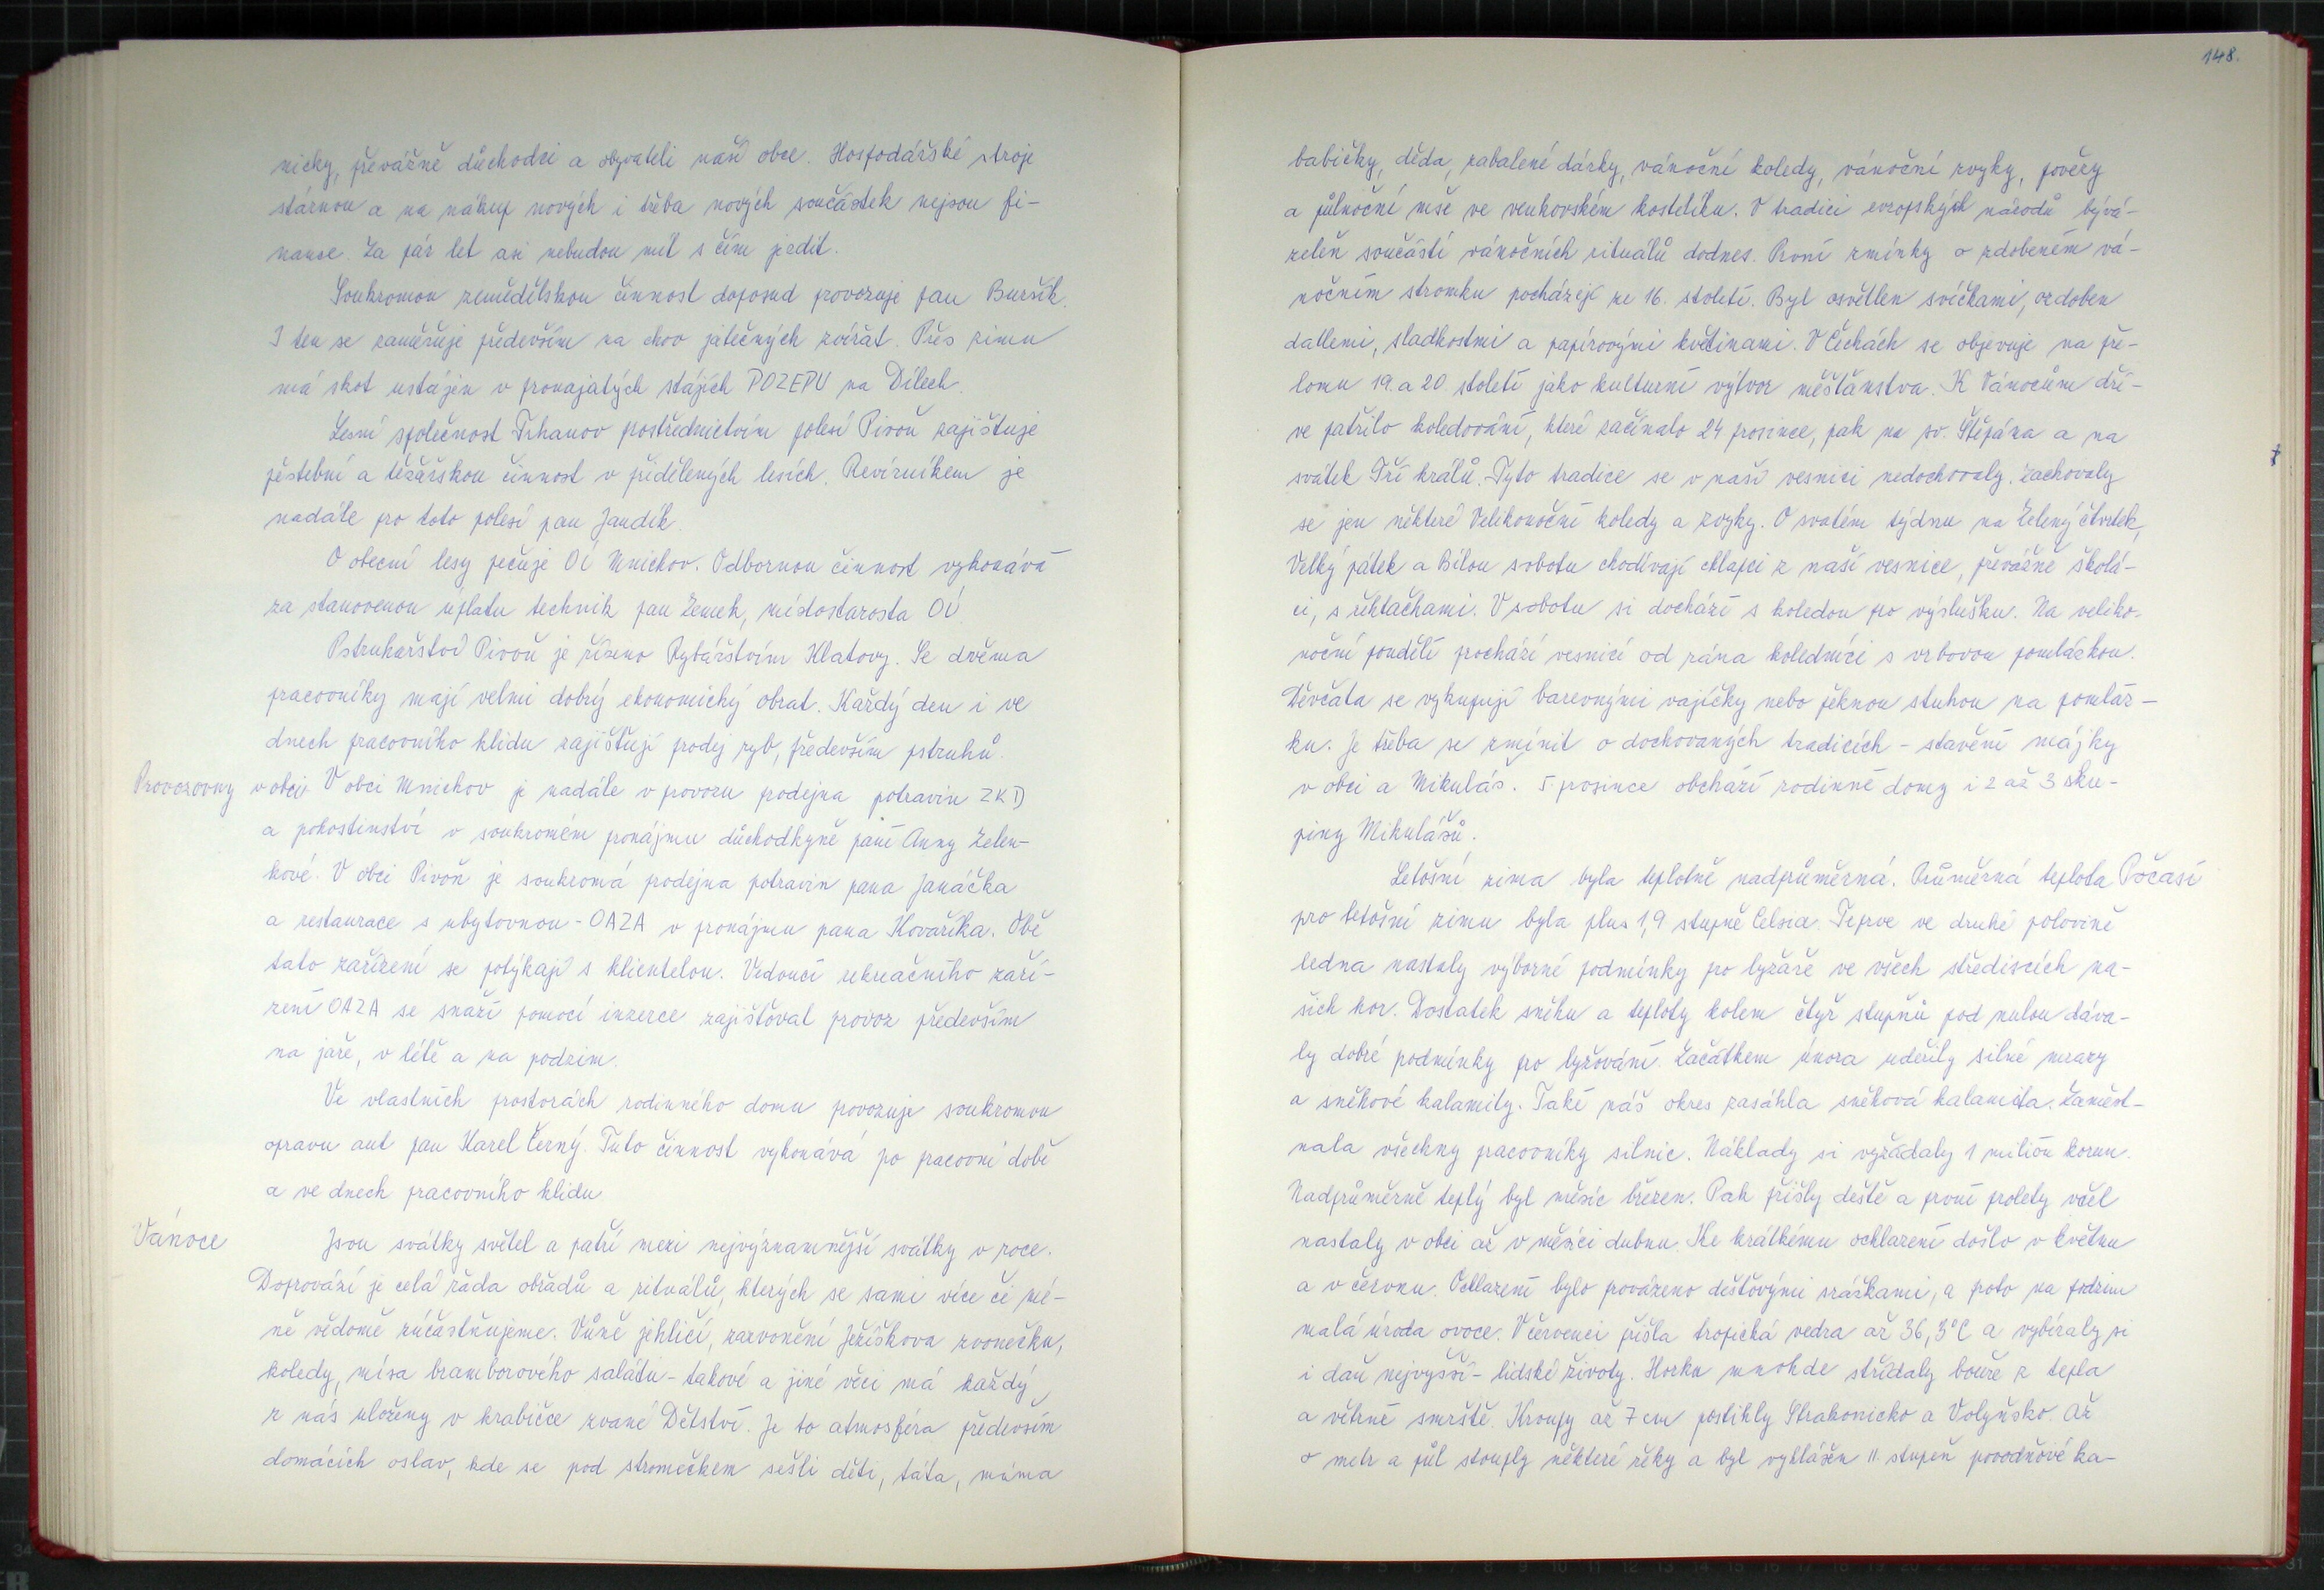 nicky, převážně důchodci a obyvateli naší obce. Hospodářské stroje
stárnou a na nákup nových i třeba nových součástek nejsou fi-
nance. Za pár let asi nebudou mít s čím jezdit.
Soukromou zemědělskou činnost doposud provozuje pan Buršík.
I ten se zaměřuje především na chov jatečných zvířat. Přes zimu
má skot ustájen v pronajatých stájích POZEPU na Dílech.
Lesní společnost Trhanov prostřednictvím polesí Pivoň zajišťuje
pěstební a těžařskou činnost v přidělených lesích. Revírníkem je
nadále pro toto polesí pan Jandík.
O obecní lesy pečuje OÚ Mnichov. Odbornou činnost vykonává
za stanovenou úplatu technik pan Zemek, místostarosta OÚ.
Pstruhařství Pivoň je řízeno Rybářstvím Klatovy. Se dvěma
pracovníky mají velmi dobrý ekonomický obrat. Každý den i ve
dnech pracovního klidu zajišťují prodej ryb, především pstruhů.
Provozovny v obci V obci Mnichov je nadále v provozu prodejna potravin ZKD
a pohostinství v soukromém pronájmu důchodkyně paní Anny Zelen-
kové. V obci Pivoň je soukromá prodejna potravin pana Janáčka
a restaurace s ubytovnou - OAZA v pronájmu pana Kovaříka. Obě
tato zařízení se potýkají s klientelou. Vedoucí rekreačního zaří-
zení OAZA se snaží pomocí inzerce zajišťovat provoz především
na jaře, v létě a na podzim.
Ve vlastních prostorách rodinného domu provozuje soukromou
opravu aut pan Karel Černý. Tuto činnost vykonává po pracovní době
a ve dnech pracovního klidu.
Vánoce Jsou svátky světel a patří mezi nejvýznamnější svátky v roce.
Doprovází je celá řada obřadů a rituálů, kterých se sami více či mé-
ně vědomě zúčastňujeme. Vůně jehličí, zazvonění Ježíškova zvonečku,
koledy, mísa bramborového salátu - takové a jiné věci má každý
z nás uloženy v krabičce zvané Dětství. Je to atmosféra především
domácích oslav, kde se pod stromečkem sešli děti, táta, máma
148.
babičky, děda, zabalené dárky, vánoční koledy, vánoční zvyky, pověry
a půlnoční mše ve venkovském kostelíku. V tradici evropských národů bývá-
zeleň součástí vánočních rituálů dodnes. První zmínky o zdobeném vá-
nočním stromku pocházejí ze 16. století. Byl osvětlen svíčkami, ozdoben
datlemi, sladkostmi a papírovými květinami. V Čechách se objevuje na pře-
lomu 19. a 20. století jako kulturní výtvor měšťanstva. K Vánocům dří-
ve patřilo koledování, které začínalo 24 prosince, pak na sv. Štěpána a na
svátek Tří králů. Tyto tradice se v naší vesnici nedochovaly. Zachovaly
se jen některé Velikonoční koledy a zvyky. O svatém týdnu na Zelený čtvrtek,
Velký pátek a Bílou sobotu chodívají chlapci z naší vesnice, převážně školá-
ci, s řehtačkami. V sobotu si dochází s koledou pro výslužku. Na veliko-
noční pondělí prochází vesnicí od rána koledníci s vrbovou pomlázkou.
Děvčata se vykupují barevnými vajíčky nebo pěknou stuhou na pomláz-
ku. Je třeba se zmínit o dochovaných tradicích - stavění májky
v obci a Mikuláš. 5. prosince obchází rodinné domy i 2 až 3 sku-
piny Mikulášů.
Letošní zima byla teplotně nadprůměrná. Průměrná teplota Počasí
pro letošní zimu byla plus 1,9 stupně Celsia. Teprve ve druhé polovině
ledna nastaly výborné podmínky pro lyžaře ve všech střediscích na-
šich hor. Dostatek sněhu a teploty kolem čtyř stupňů pod nulou dáva-
ly dobré podmínky pro lyžování. Začátkem února udeřily silné mrazy
a sněhové kalamity. Také náš okres zasáhla sněhová kalamita. Zaměst-
nala všechny pracovníky silnic. Náklady si vyžádaly 1 milión korun.
Nadprůměrně teplý byl měsíc březen. Pak přišly deště a první prolety včel
nastaly v obci až v měsíci dubnu. Ke krátkému ochlazení došlo v květnu
a v červnu. Ochlazení bylo provázeno dešťovými srážkami, a proto na podzim
malá úroda ovoce. V červenci přišla tropická vedra až 36,3°C a vybíraly si
i daň nejvyšší - lidské životy. Horka mnohde střídaly bouře z tepla
a větrné smrště. Kroupy až 7 cm postihly Strakonicko a Volyňsko. Až
o metr a půl stouply některé řéky a byl vyhlášen II. stupeň povodňové ka-